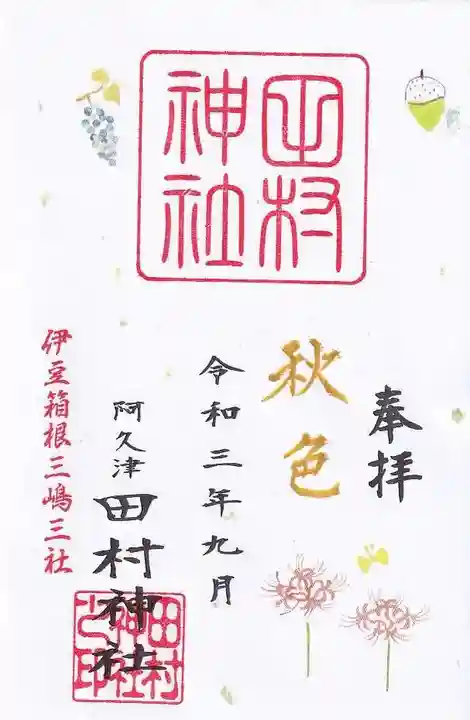 田村
神社
奉拝
秋色
令和三年九月
阿久津
田村神社
田村
神社
之印
伊豆箱根三嶋三社